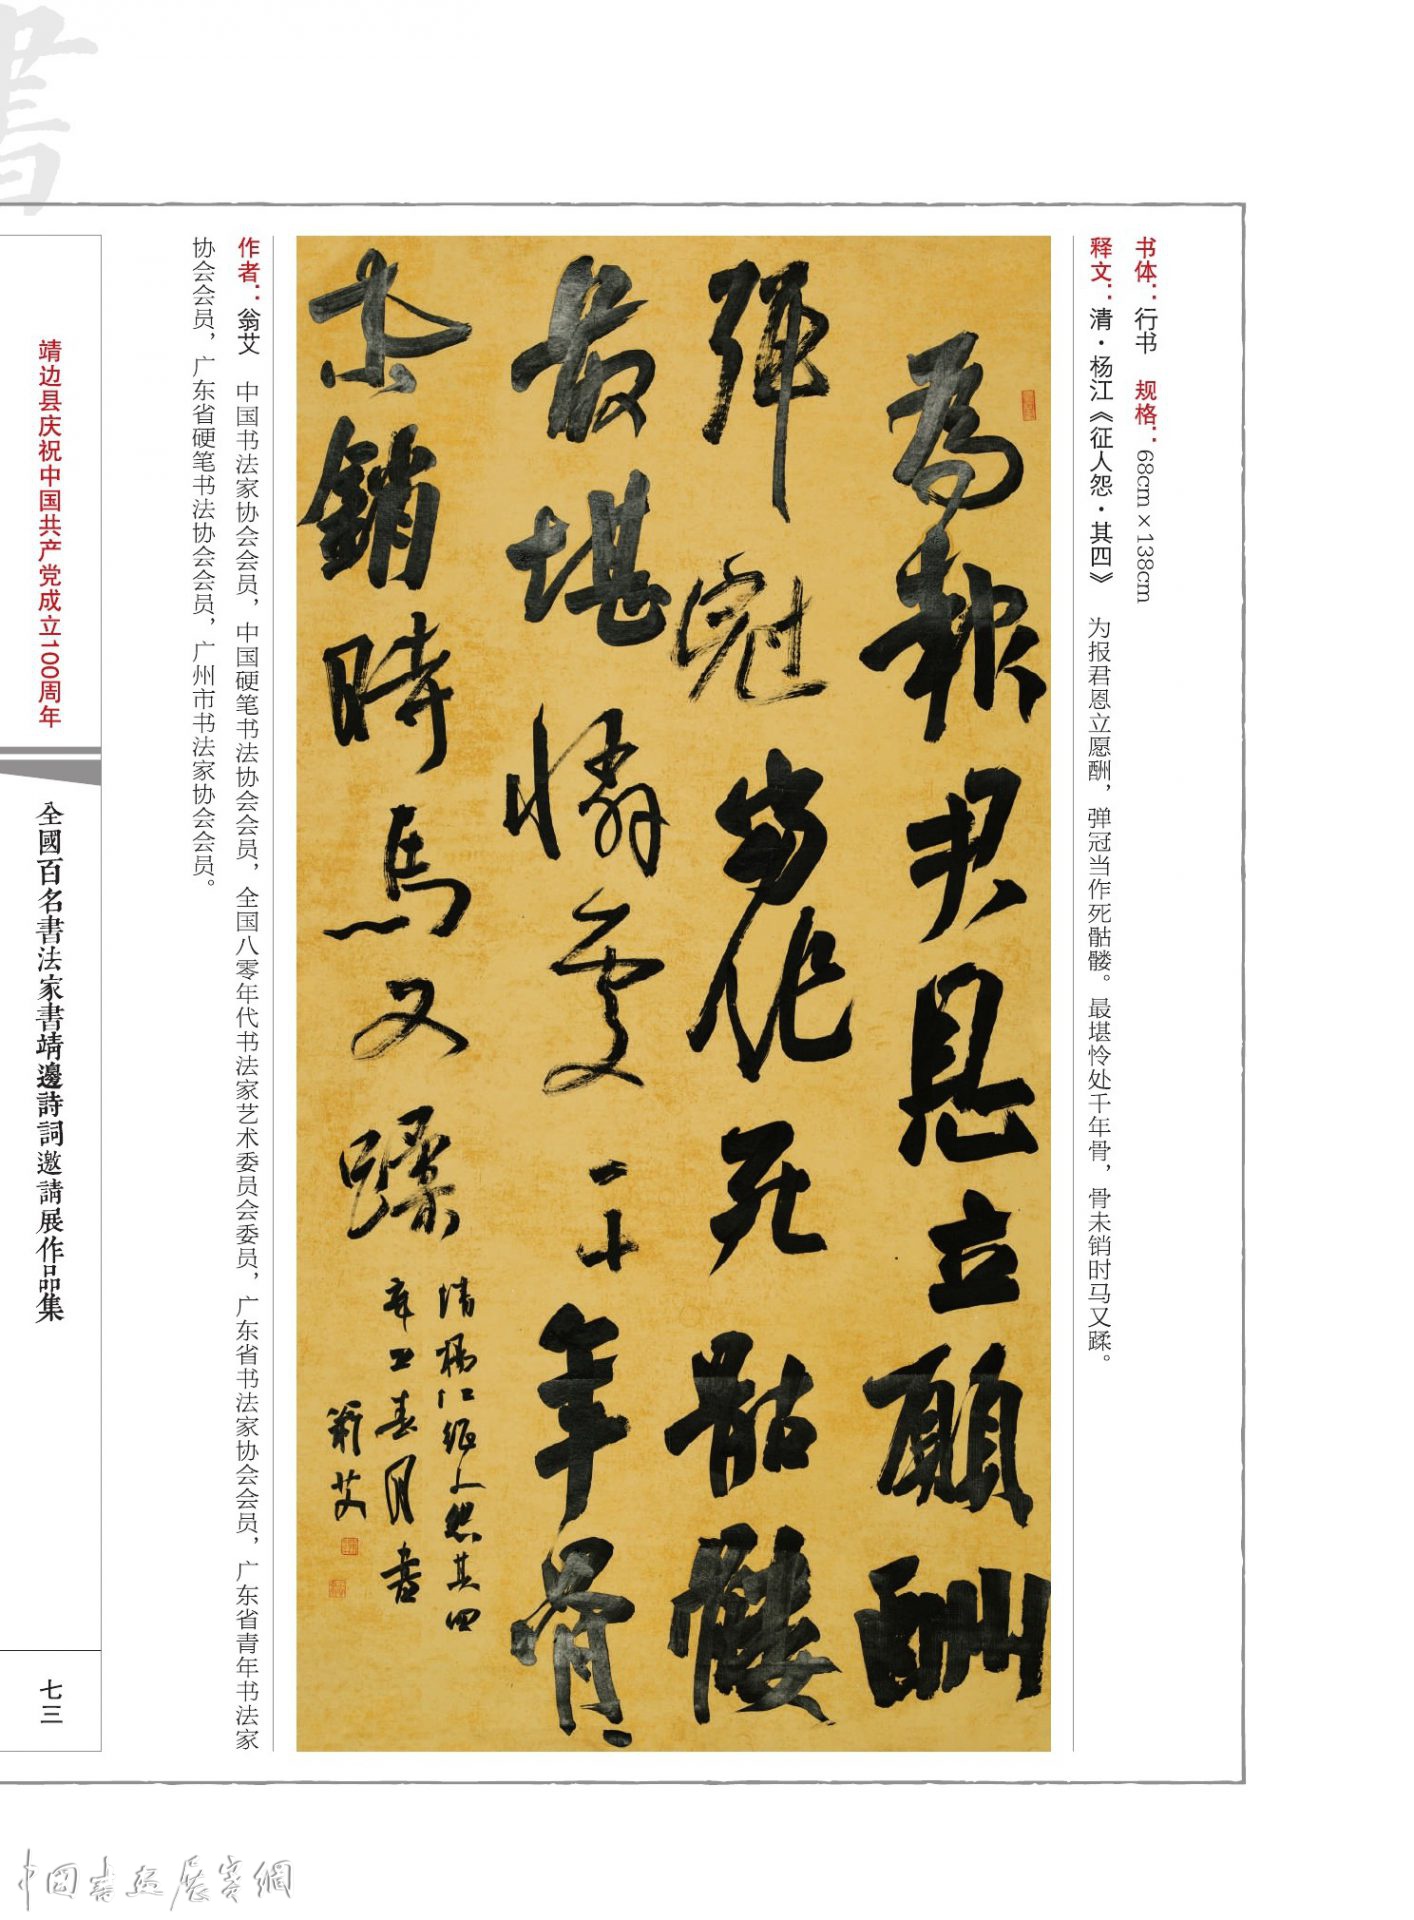 書
书体：行书　规格：68cm×138cm
释文：清·杨江《征人怨·其四》　为报君恩立愿酬，弹冠当作死骷髅。最堪怜处千年骨，骨未销时马又蹂。
為報君恩立願酬
彈冠當作死骷髏
最堪憐處千年骨
未銷時馬又蹂
清楊江征人怨其四
辛丑春月書
翁艾
作者：翁艾　中国书法家协会会员，中国硬笔书法协会会员，全国八零年代书法家艺术委员会委员，广东省书法家协会会员，广东省青年书法家
协会会员，广东省硬笔书法协会会员，广州市书法家协会会员。
靖边县庆祝中国共产党成立100周年
全國百名書法家書靖邊詩詞邀請展作品集
七三
中國書畫展賽網